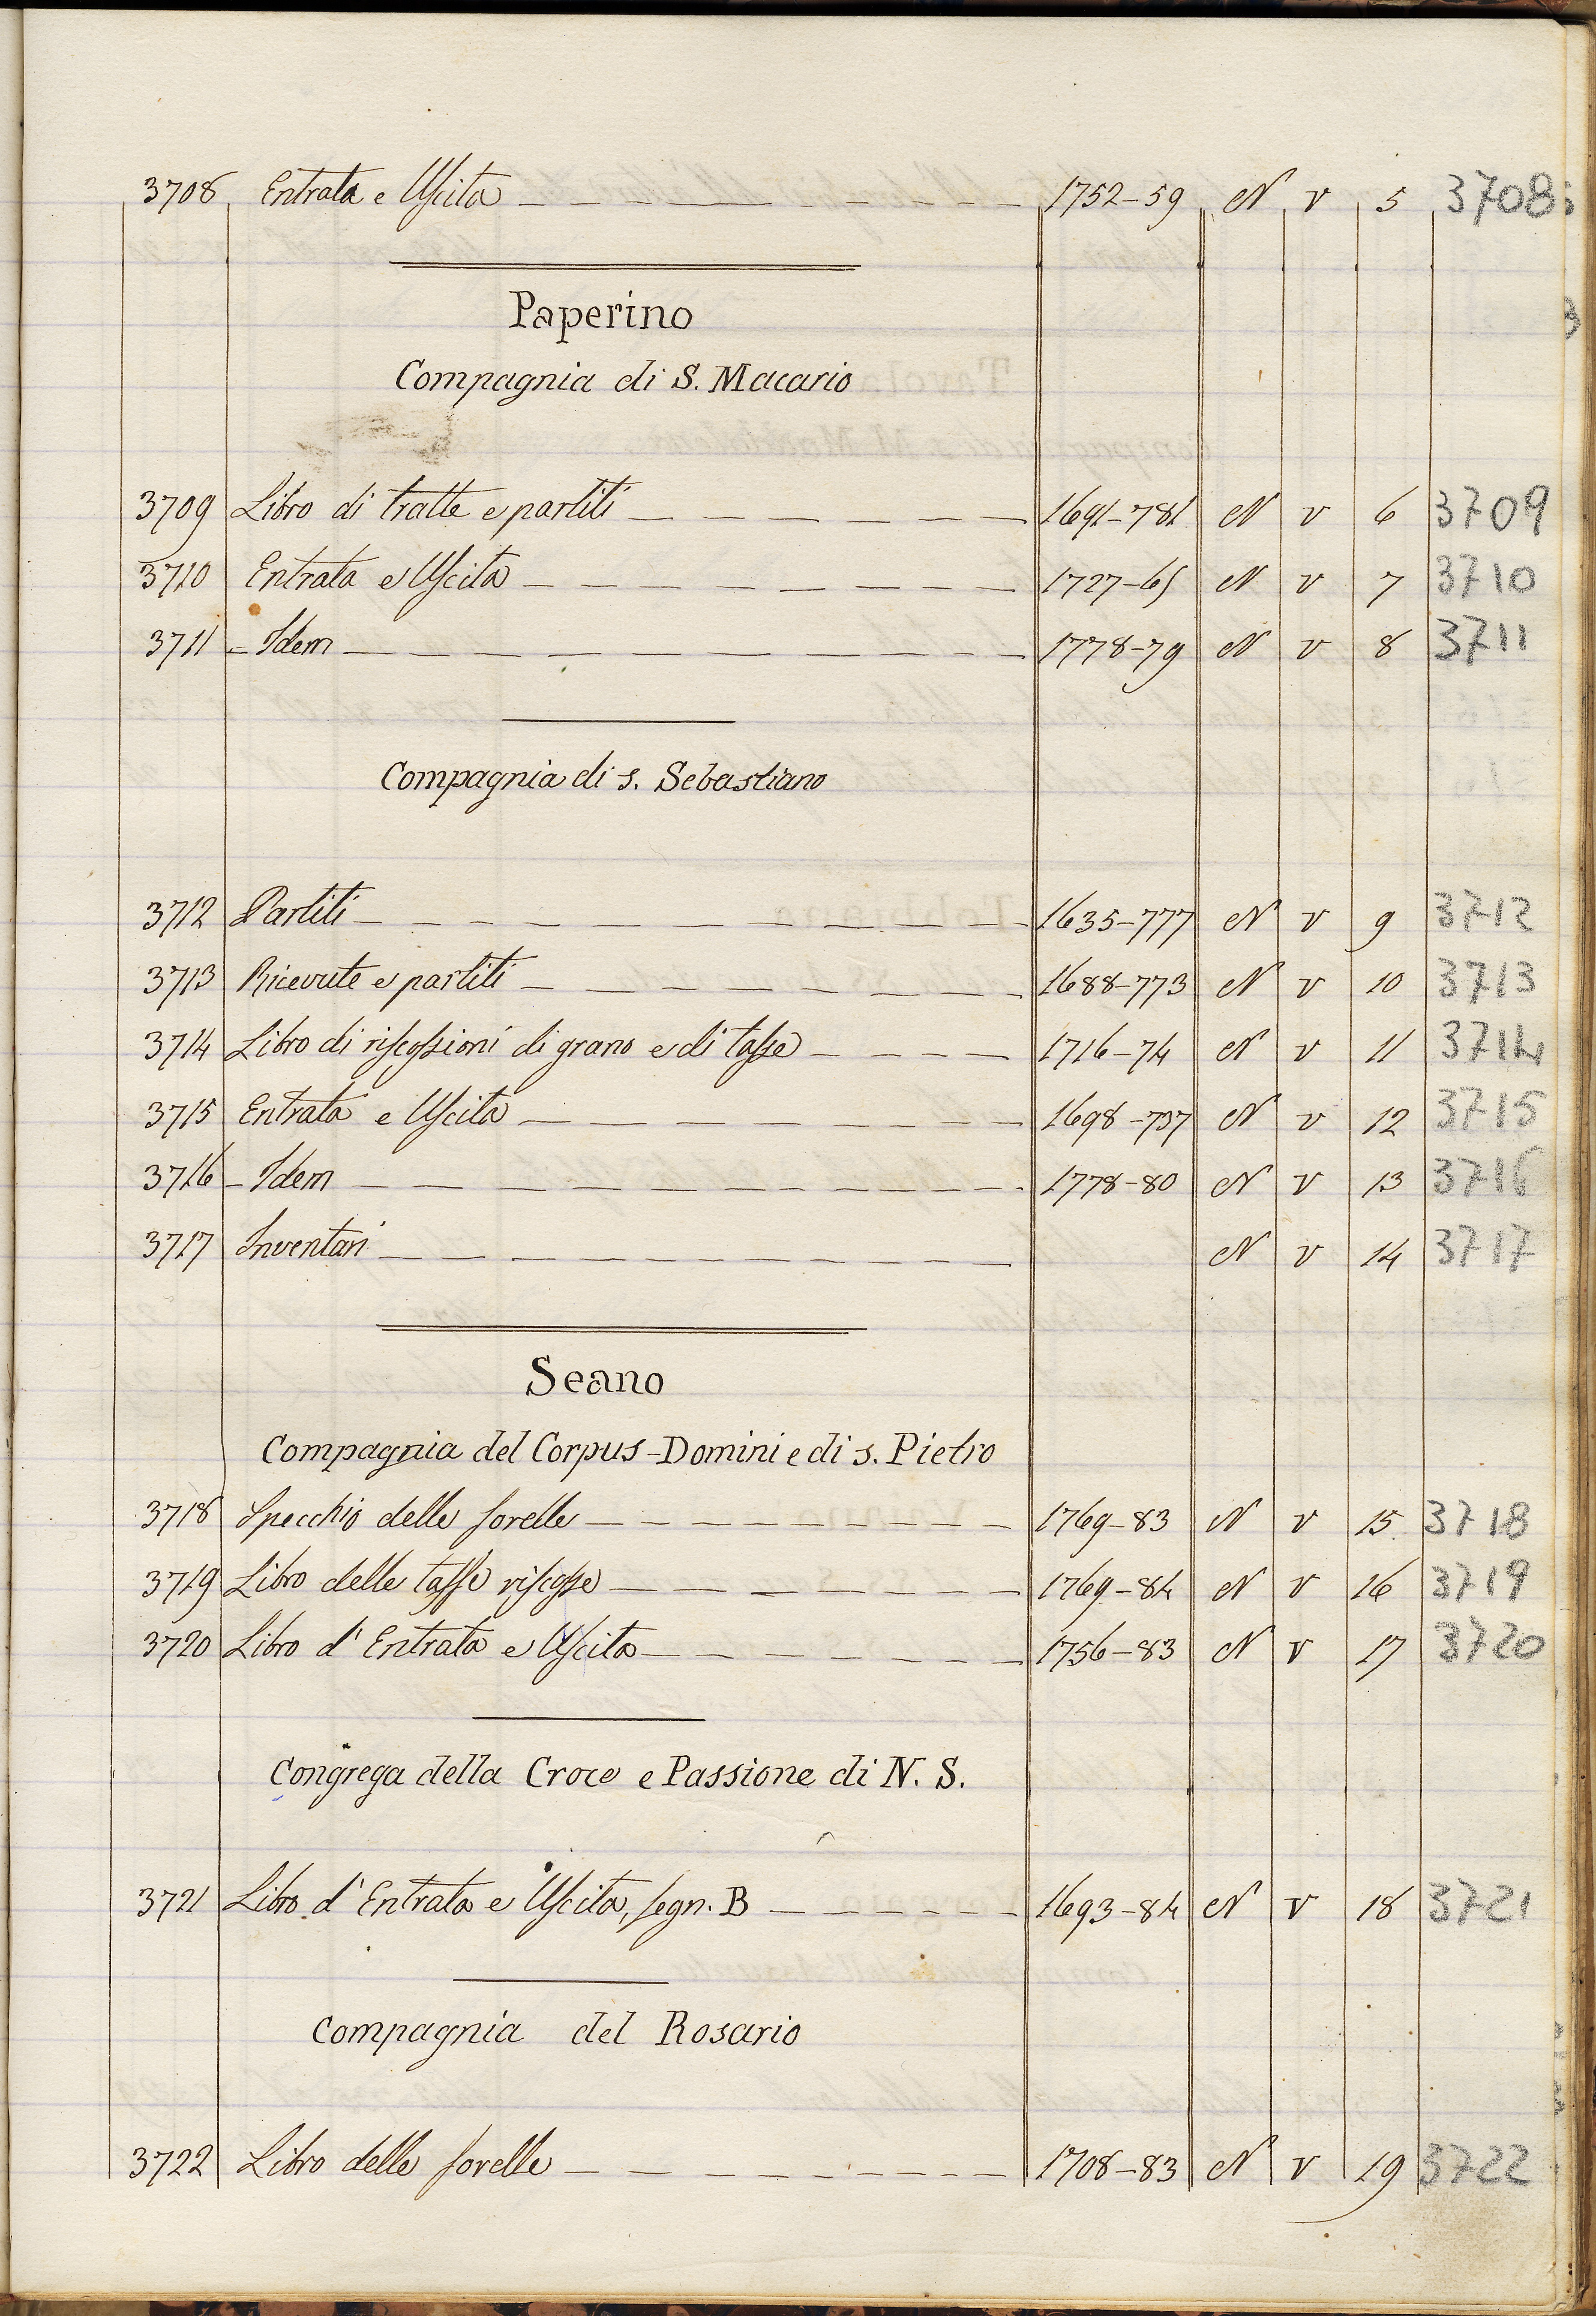 3708 Entrata e Uscita 1752-59 N V 5 3708
Paperino
Compagnia di S. Macario
3709 Libro di tratte e partiti 1691-781 N V 6 3709
3710 Entrata e Uscita 1727-65 N V 7 3710
3711 - Idem 1778-79 N V 8 3711
Compagnia di s. Sebastiano
3712 Partiti 1635-777 N V 9 3712
3713 Ricevute e partiti 1688-773 N V 10 3713
3714 Libro di riscossioni di grano e di tasse 1716-74 N V 11 3714
3715 Entrata e Uscita 1698-737 N V 12 3715
3716 - Idem 1778-80 N V 13 3716
3717 Inventari N V 14 3717
Seano
Compagnia del Corpus-Domini e di s. Pietro
3718 Specchio delle sorelle 1769-83 N V 15 3718
3719 Libro delle tasse riscosse 1769-84 N V 16 3719
3720 Libro d'Entrata e Uscita 1756-83 N V 17 3720
Congrega della Croce e Passione di N. S.
3721 Libro d'Entrata e Uscita, segn. B 1693-84 N V 18 3721
Compagnia del Rosario
3722 Libro delle sorelle 1708-83 N V 19 3722